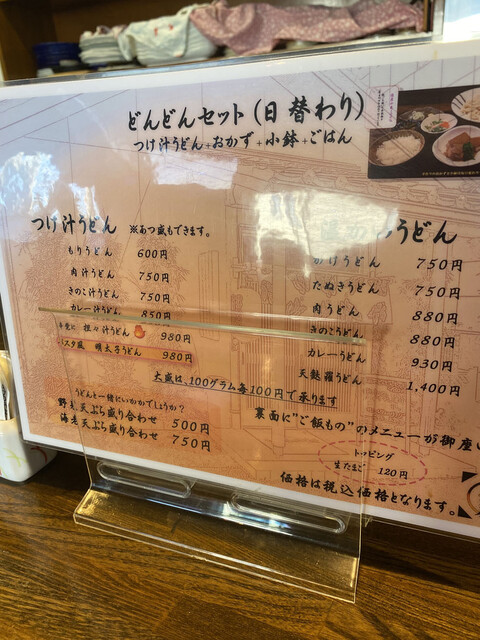 どんどんセット(日替わり)
つけ汁うどん+おかず+小鉢+ごはん
つけ汁うどん ※あつ盛もできます。
もりうどん 600円
肉汁うどん 750円
きのこ汁うどん 750円
カレー汁うどん 850円
担々汁うどん 980円
パスタ風 明太子うどん 980円
うどん
かけうどん 750円
たぬきうどん 750円
肉うどん 880円
きのこうどん 880円
カレーうどん 930円
天麩羅うどん 1,400円
大盛は、100グラム毎100円で承ります
うどんと一緒にいかがでしょうか?
野菜天ぷら盛り合わせ 500円
海老天ぷら盛り合わせ 750円
裏面に"ご飯もの"のメニューが御座い
トッピング
生たまご 120円
価格は税込価格となります。